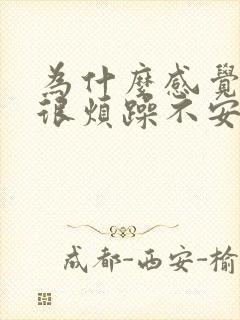 為什麼感覺
很煩躁不安
成都-西安-榆